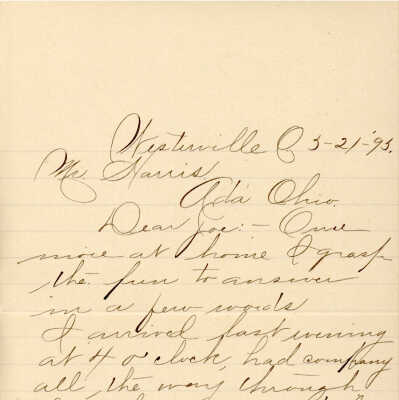 Westerville O 5-21-'95.
Mr Harris
Ada Ohio.
Dear Joe:- Once
more at home I grasp
the pen to answer
in a few words
I arrived last evening
at 4 o'clock, had company
all the way through